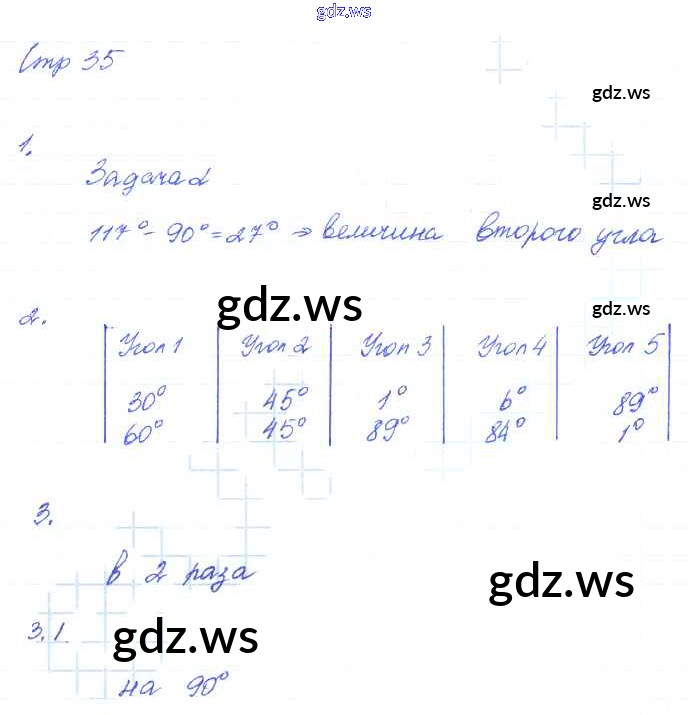 gdz.ws
Стр 35
gdz.ws
1.
Задача 2
gdz.ws
117° - 90° = 27° ⇒ величина второго угла
2.
gdz.ws
gdz.ws
Угол 1 Угол 2 Угол 3 Угол 4 Угол 5
30° 45° 1° 6° 89°
60° 45° 89° 84° 1°
3.
в 2 раза
gdz.ws
3.1
gdz.ws
на 90°